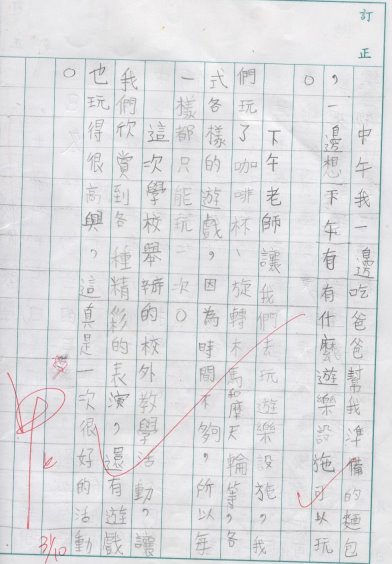 訂正
中午我一邊吃爸爸幫我準備的麵包
，一邊想下午有有什麼遊樂設施可以玩
。
下午老師讓我們去玩遊樂設施，我
們玩了咖啡杯、旋轉木馬和摩天輪等，各
式各樣的遊戲，因為時間不夠，所以每
一樣都只能玩一次。
這次學校舉辦的校外教學活動，讓
我們欣賞到各種精彩的表演，還有遊戲
也玩得很高興，這真是一次很好的活動
。
3/10